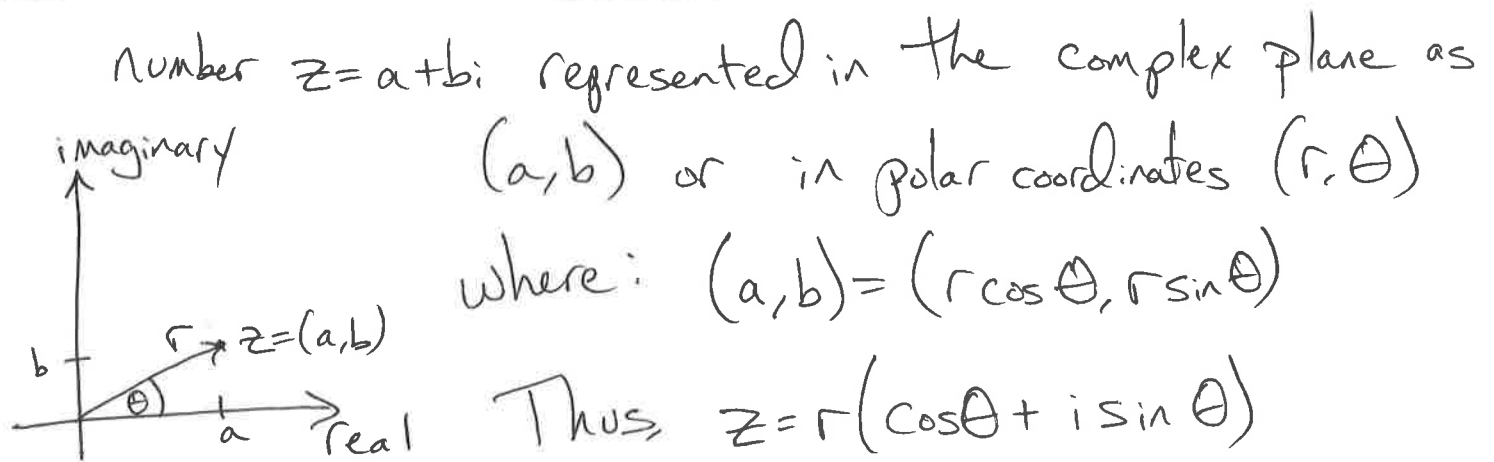 number z=a+bi represented in the complex plane as
(a,b) or in polar coordinates (r,θ)
where: (a,b)=(r cos θ, r sin θ)
Thus, z=r(cosθ + i sin θ)
imaginary
r z=(a,b)
b
θ
a
real